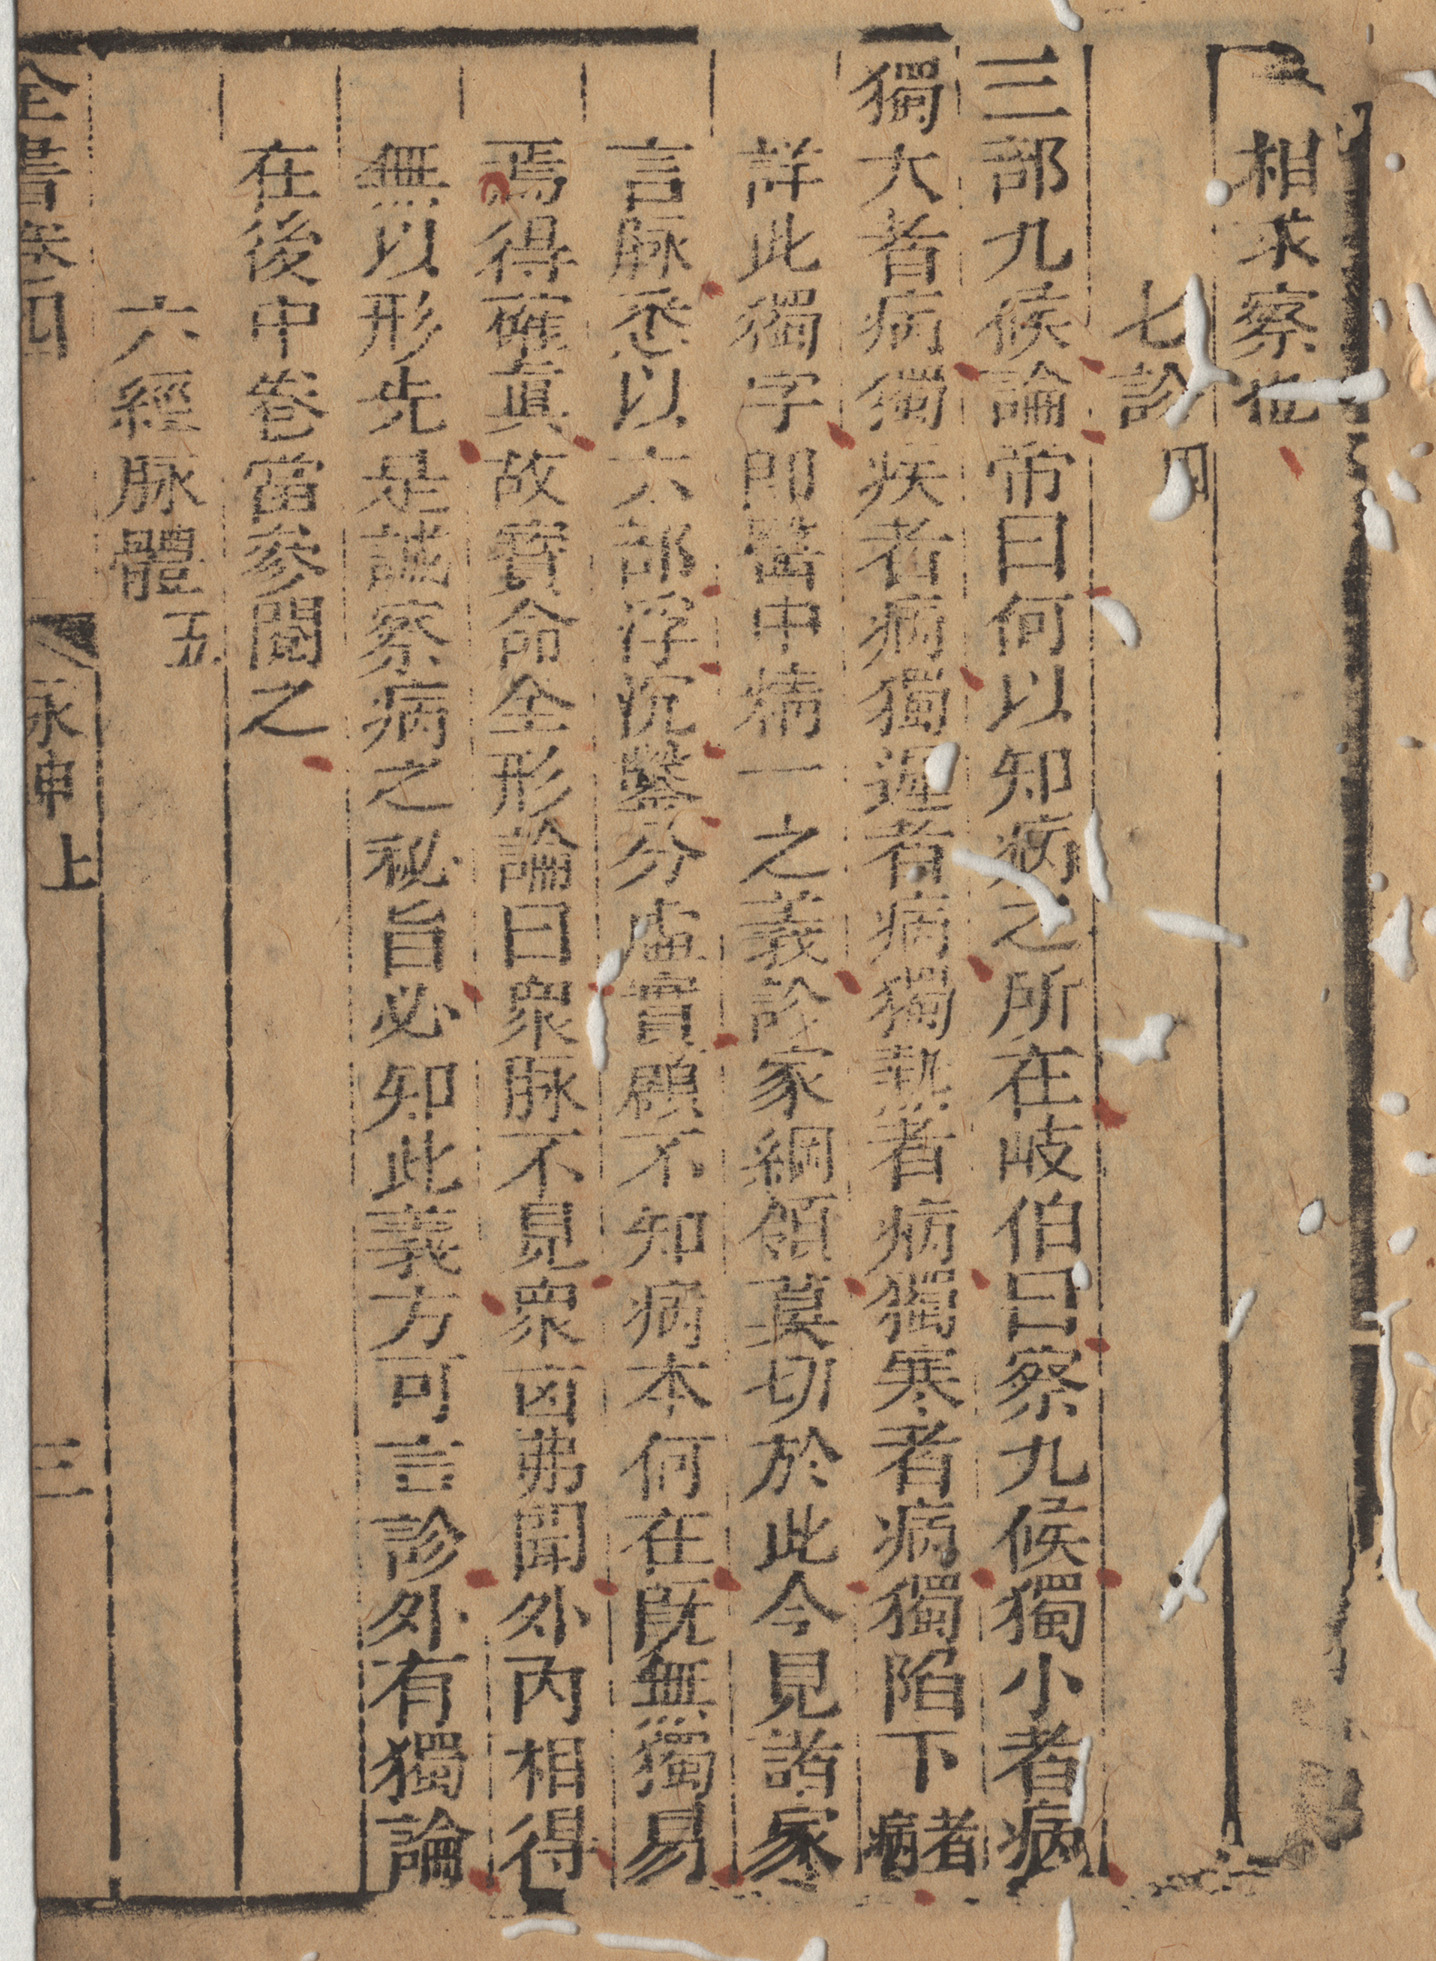 相求察也
七診四
三部九候論帝曰何以知病之所在岐伯曰察九候獨小者病
獨大者病獨疾者病獨遲者病獨熱者病獨寒者病獨陷下者病
詳此獨字即醫中精一之義診家綱領莫切於此今見諸家
言脉悉以六部浮沉鑿分虛實顧不知病本何在旣無獨易
焉得確眞故寶命全形論曰衆脉不見衆凶弗聞外內相得
無以形先是誠察病之秘旨必知此義方可言診外有獨論
在後中卷當參閱之
六經脉體五
全書卷四 脉神上 三